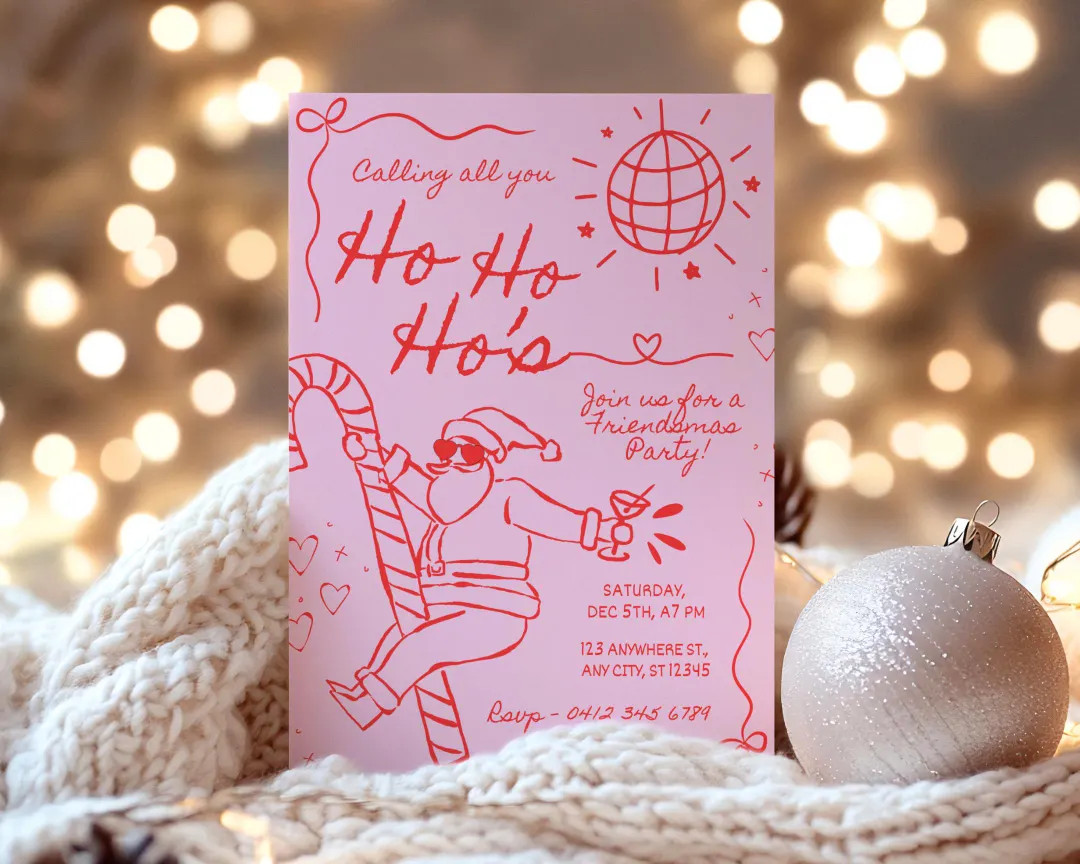 Calling all you
Ho Ho
Ho's
Join us for a
Friendsmas
Party!
SATURDAY,
DEC 5TH, A7 PM
123 ANYWHERE ST.,
ANY CITY, ST 12345
Rsvp - 0412 345 6789